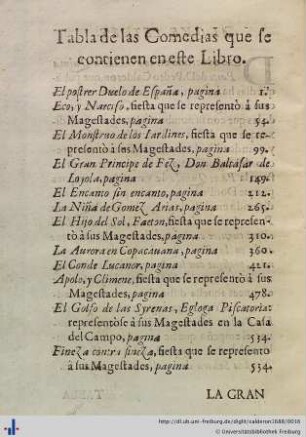 Tabla de las Comedias que se
contienen en este Libro.
El postrer Duelo de España, pagina 1.
Eco, y Narciso, fiesta que se representò à sus
Magestades, pagina 54.
El Monstruo de los Iardines, fiesta que se re-
presentò à sus Magestades, pagina 99.
El Gran Principe de Fez, Don Baltasar de
Loyola, pagina 149.
El Encanto sin encanto, pagina 212.
La Niña de Gomez Arias, pagina 265.
El Hijo del Sol, Faeton, fiesta que se represen-
tò à sus Magestades, pagina 310.
La Aurora en Copacavana, pagina 360.
El Conde Lucanor, pagina 421.
Apolo, y Climene, fiesta que se representò à sus
Magestades, pagina 478.
El Golfo de las Syrenas, Egloga Piscatoria:
representòse à sus Magestades en la Casa
del Campo, pagina 534.
Fineza contra fineza, fiesta que se representò
à sus Magestades, pagina 534.
LA GRAN
http://dl.ub.uni-freiburg.de/diglit/calderon1688/0016
© Universitätsbibliothek Freiburg